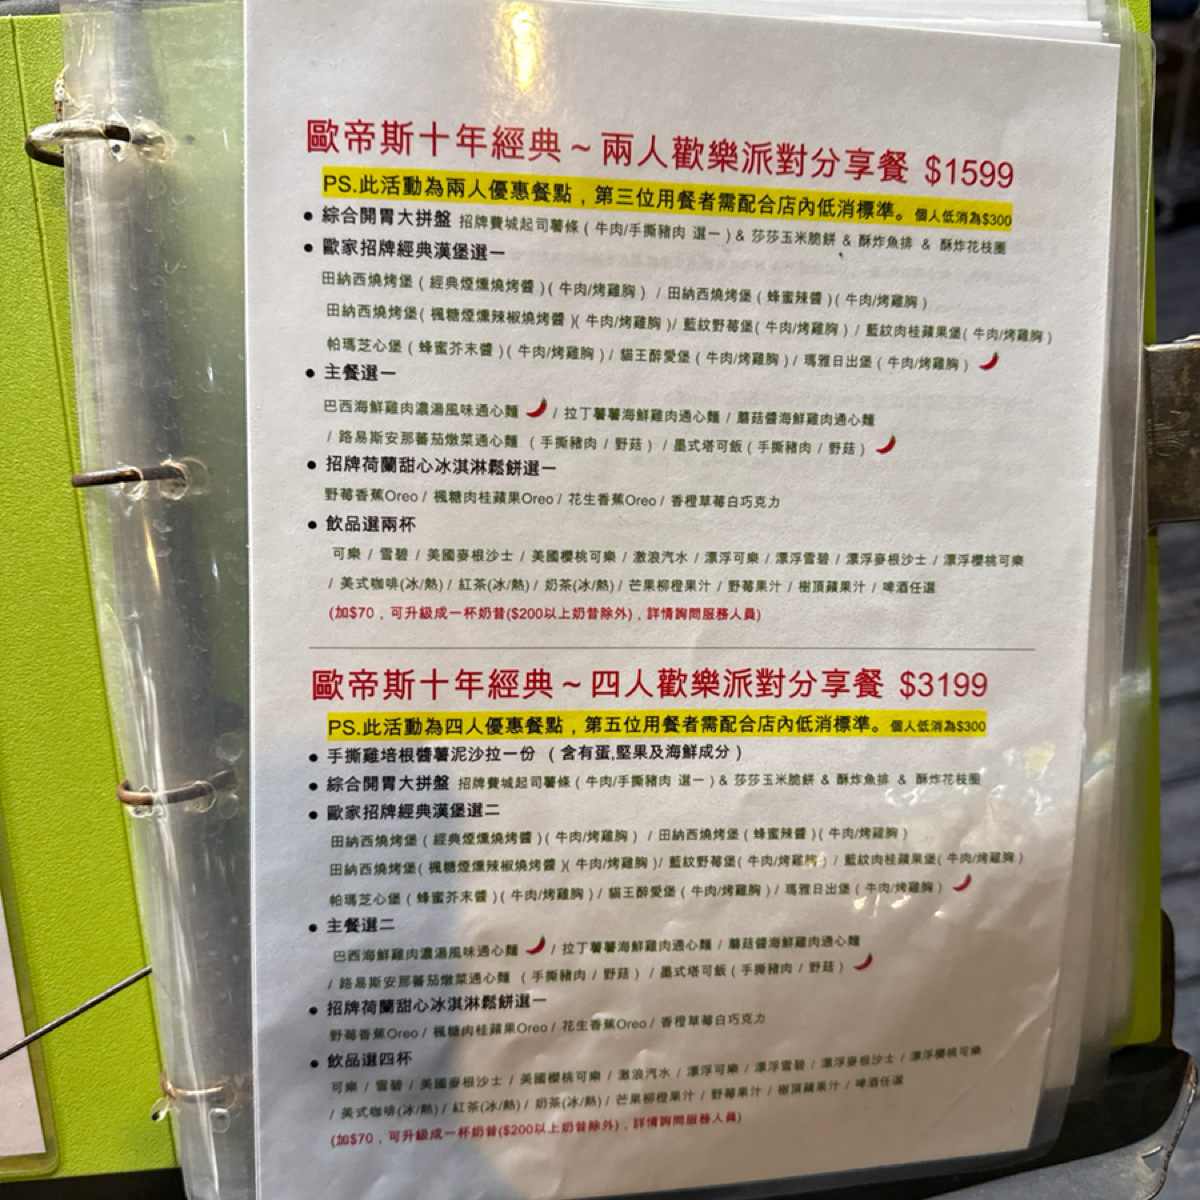 歐帝斯十年經典～兩人歡樂派對分享餐 $1599
PS.此活動為兩人優惠餐點，第三位用餐者需配合店內低消標準。個人低消為$300
● 綜合開胃大拼盤 招牌費城起司薯條 ( 牛肉/手撕豬肉 選一 ) & 莎莎玉米脆餅 & 酥炸魚排 & 酥炸花枝圈
● 歐家招牌經典漢堡選一
田納西燒烤堡 ( 經典煙燻燒烤醬 )( 牛肉/烤雞胸 ) / 田納西燒烤堡 ( 蜂蜜辣醬 )( 牛肉/烤雞胸 )
田納西燒烤堡( 楓糖煙燻辣椒燒烤醬 )( 牛肉/烤雞胸 )/ 藍紋野莓堡( 牛肉/烤雞胸 ) / 藍紋肉桂蘋果堡( 牛肉/烤雞胸 )
帕瑪芝心堡 ( 蜂蜜芥末醬 )( 牛肉/烤雞胸 ) / 貓王醉愛堡 ( 牛肉/烤雞胸 )/ 瑪雅日出堡 ( 牛肉/烤雞胸 )
● 主餐選一
巴西海鮮雞肉濃湯風味通心麵 / 拉丁薯薯海鮮雞肉通心麵 / 蘑菇醬海鮮雞肉通心麵
/ 路易斯安那蕃茄燉菜通心麵 ( 手撕豬肉 / 野菇 ) / 墨式塔可飯 ( 手撕豬肉 / 野菇 )
● 招牌荷蘭甜心冰淇淋鬆餅選一
野莓香蕉Oreo / 楓糖肉桂蘋果Oreo / 花生香蕉Oreo / 香橙草莓白巧克力
● 飲品選兩杯
可樂 / 雪碧 / 美國麥根沙士 / 美國櫻桃可樂 / 激浪汽水 / 漂浮可樂 / 漂浮雪碧 / 漂浮麥根沙士 / 漂浮櫻桃可樂
/ 美式咖啡(冰/熱) / 紅茶(冰/熱) / 奶茶(冰/熱) / 芒果柳橙果汁 / 野莓果汁 / 樹頂蘋果汁 / 啤酒任選
(加$70，可升級成一杯奶昔($200以上奶昔除外)，詳情詢問服務人員)
歐帝斯十年經典～四人歡樂派對分享餐 $3199
PS.此活動為四人優惠餐點，第五位用餐者需配合店內低消標準。個人低消為$300
● 手撕雞培根醬薯泥沙拉一份 （含有蛋,堅果及海鮮成分）
● 綜合開胃大拼盤 招牌費城起司薯條 ( 牛肉/手撕豬肉 選一 ) & 莎莎玉米脆餅 & 酥炸魚排 & 酥炸花枝圈
● 歐家招牌經典漢堡選二
田納西燒烤堡 ( 經典煙燻燒烤醬 )( 牛肉/烤雞胸 ) / 田納西燒烤堡 ( 蜂蜜辣醬 )( 牛肉/烤雞胸 )
田納西燒烤堡( 楓糖煙燻辣椒燒烤醬 )( 牛肉/烤雞胸 )/ 藍紋野莓堡( 牛肉/烤雞胸 ) / 藍紋肉桂蘋果堡( 牛肉/烤雞胸 )
帕瑪芝心堡 ( 蜂蜜芥末醬 )( 牛肉/烤雞胸 ) / 貓王醉愛堡 ( 牛肉/烤雞胸 )/ 瑪雅日出堡 ( 牛肉/烤雞胸 )
● 主餐選二
巴西海鮮雞肉濃湯風味通心麵 / 拉丁薯薯海鮮雞肉通心麵 / 蘑菇醬海鮮雞肉通心麵
/ 路易斯安那蕃茄燉菜通心麵 ( 手撕豬肉 / 野菇 ) / 墨式塔可飯 ( 手撕豬肉 / 野菇 )
● 招牌荷蘭甜心冰淇淋鬆餅選一
野莓香蕉Oreo / 楓糖肉桂蘋果Oreo / 花生香蕉Oreo / 香橙草莓白巧克力
● 飲品選四杯
可樂 / 雪碧 / 美國麥根沙士 / 美國櫻桃可樂 / 激浪汽水 / 漂浮可樂 / 漂浮雪碧 / 漂浮麥根沙士 / 漂浮櫻桃可樂
/ 美式咖啡(冰/熱) / 紅茶(冰/熱) / 奶茶(冰/熱) / 芒果柳橙果汁 / 野莓果汁 / 樹頂蘋果汁 / 啤酒任選
(加$70，可升級成一杯奶昔($200以上奶昔除外)，詳情詢問服務人員)